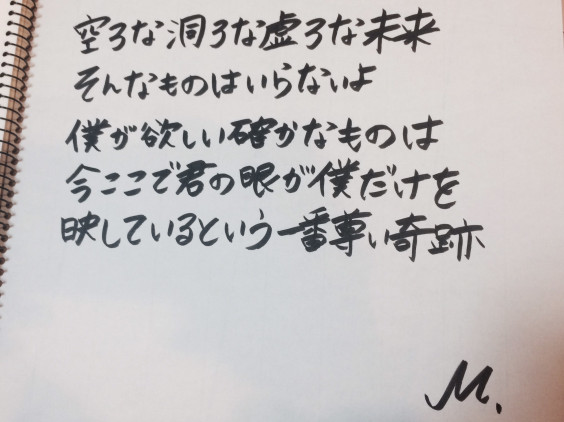 空ろな洞ろな虚ろな未来
そんなものはいらないよ
僕が欲しい確かなものは
今ここで君の眼が僕だけを
映しているという一番尊い奇跡
M.